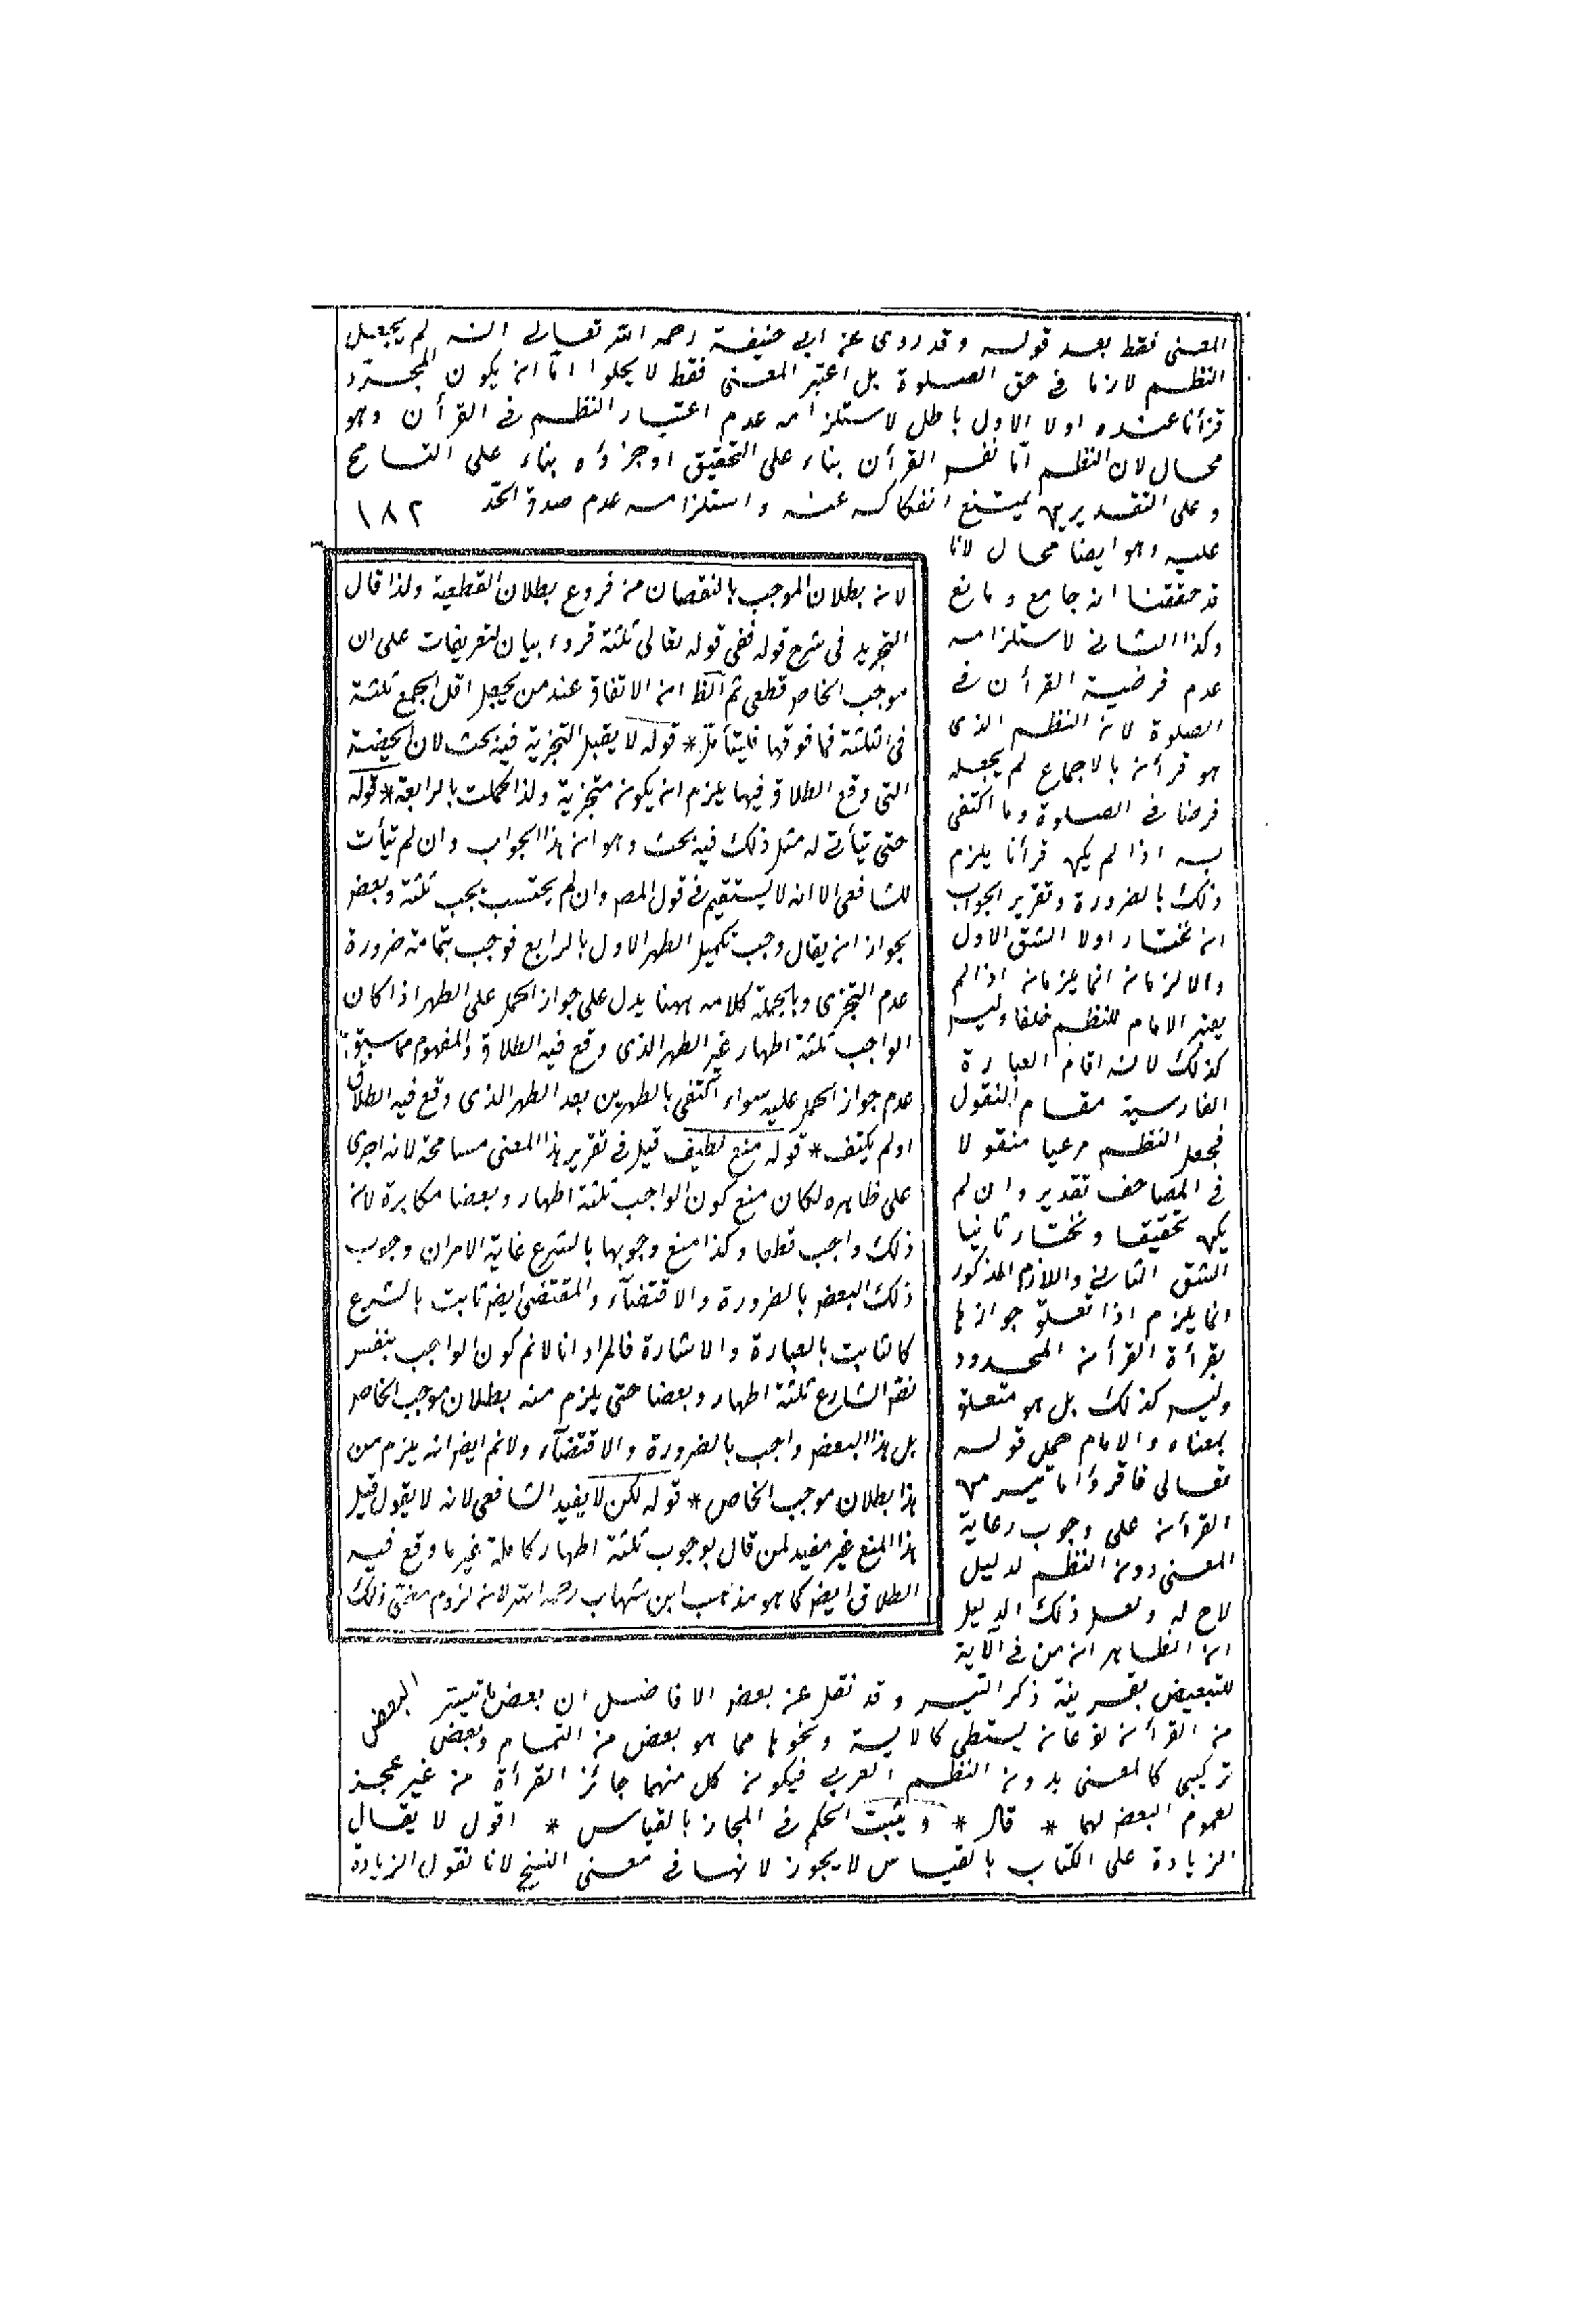 المعنى فقط بعد قوله وقد روى عن ابى حنيفة رحمه الله تعالى انه لم يجعل
النظم لازما فى حق الصلوة بل اعتبر المعنى فقط لا يخلوا اما ان يكون المجرد
قرأنا عنده اولا الاول باطل لاستلزامه عدم اعتبار النظم فى القرأن وهو
محال لان النظم اما نفس القرأن بناء على التحقيق اوجزؤه بناء على التسامح
وعلى التقديرين يمتنع انفكاكه عنه واستلزامه عدم صدق الحد ١٨٢
عليه وهو ايضا محال لانا
قد حققنا انه جامع ومانع
وكذا الثانى لاستلزامه
عدم فرضية القرأن فى
الصلوة لان النظم الذى
هو قرأن بالاجماع لم يجعله
فرضا فى الصلوة وما اكتفى
به اذا لم يكن قرأنا يلزم
ذلك بالضرورة وتقرير الجواب
ان نختار اولا الشق الاول
والالزمان انما يلزمان اذا لم
يعتبر الامام للنظم خلفا وليس
كذلك لانه اقام العبارة
الفارسية مقام المنقول
فجعل النظم مرعيا منقولا
فى المصاحف تقديرا وان لم
يكن تحقيقا ونختار ثانيا
الشق الثانى واللازم المذكور
انما يلزم اذا تعلق جوازها
بقرأة القرأن المحدود
وليس كذلك بل هو متعلق
بمعناه والامام حمل قوله
تعالى فاقرؤا ما تيسر من
القرأن على وجوب رعاية
المعنى دون النظم لدليل
لاح له ولعل ذلك الدليل
ان الظاهر ان من فى الآية
للتبعيض بقرينة ذكر التيسر وقد نقل عن بعض الافاضل ان بعض ما تيسر البعض
من القرأن نوعان بسطى كالاية ونحوها مما هو بعض من التمام وبعض
تركيبى كالمعنى بدون النظم العربى فيكون كل منهما جائز القرأة من غير عجز
لعموم البعض لهما * قال * ويثبت الحكم فى المجاز بالقياس * اقول لا يقال
الزيادة على الكتاب بالقياس لا يجوز لانها فى معنى النسخ لانا نقول الزيادة
لان بطلان الموجب بالنقصان من فروع بطلان القطعية ولذا قال
التجريد فى شرح قوله ففى قوله تعالى ثلثة قروء بيان لتعريفات على ان
موجب الخاص قطعى ثم الظ ان الاتفاق عند من يجعل اقل الجمع ثلثة
فى الثلثة فما فوقها فليتأمل * قوله لا يقبل التجزية فيه بحث لان الحيضة
التى وقع الطلاق فيها يلزم ان يكون متجزية ولذا كملت بالرابعة * قوله
حتى يتأتى له مثل ذلك فيه بحث وهو ان هذا الجواب وان لم يتأت
للشافعى الا انه لا يستقيم فى قول المص وان لم يحتسب يجب ثلثة وبعض
لجواز ان يقال وجب تكميل الطهر الاول بالرابع فوجب بتمامه ضرورة
عدم التجزى وبالجملة كلامه ههنا يدل على جواز الحمل على الطهر اذا كان
الواجب ثلثة اطهار غير الطهر الذى وقع فيه الطلاق والمفهوم مما سبق
عدم جواز الحمل عليه سواء اكتفى بالطهرين بعد الطهر الذى وقع فيه الطلاق
اولم يكتف * قوله منع لطيف قيل فى تقرير هذا المعنى مسامحة لانه اجرى
على ظاهره لكان منع كون الواجب ثلثة اطهار وبعضا مكابرة لان
ذلك واجب قطعا وكذا منع وجوبها بالشرع غاية الامر ان وجوب
ذلك البعض بالضرورة والاقتضآء والمقتضى ايض ثابت بالشرع
كالثابت بالعبارة والاشارة فالمراد انا لانم كون الواجب بنفس
نص الشارع ثلثة اطهار وبعضا حتى يلزم منه بطلان موجب الخاص
بل هذا البعض واجب بالضرورة والاقتضآء ولانم ايض انه يلزم من
هذا بطلان موجب الخاص * قوله لكن لا يفيد الشافعى لانه لا يقول قيل
هذا المنع غير مفيد لمن قال بوجوب ثلثة اطهار كاملة غير ما وقع فيه
الطلاق ايض كما هو مذهب ابن شهاب رحمه الله لان لزوم ذلك